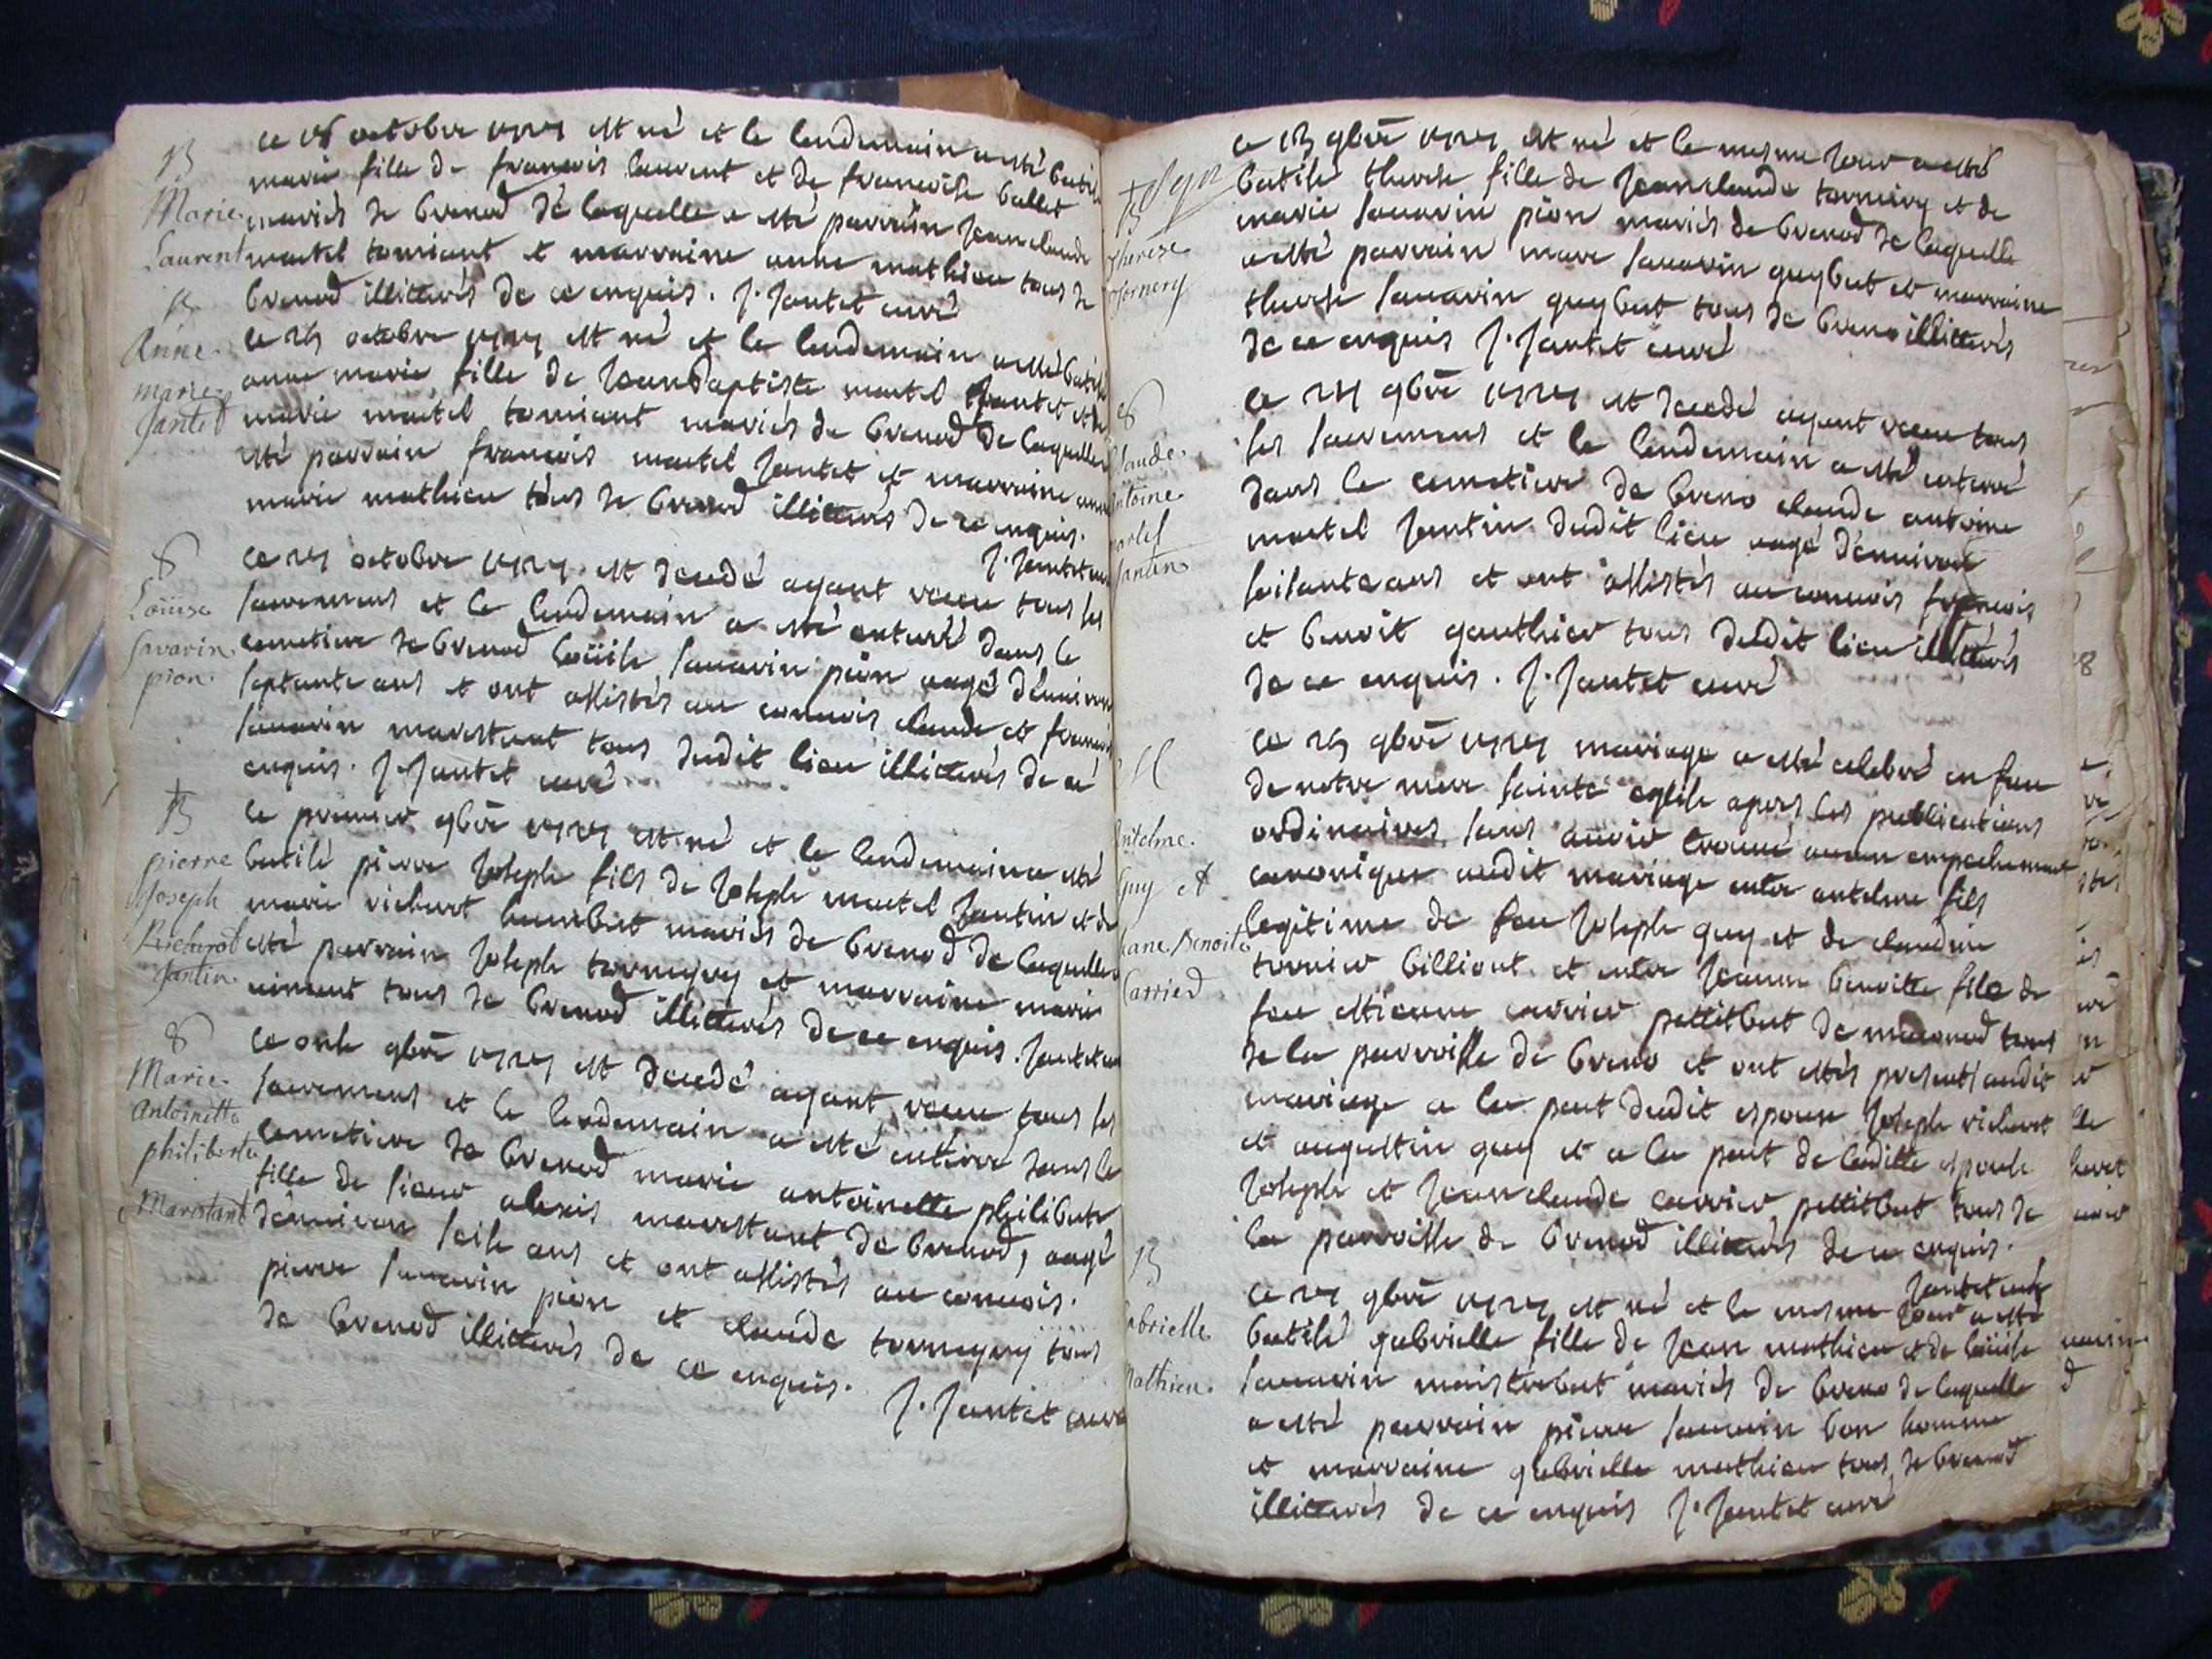 B
Marie
Laurent
ce octobre est né et le lendemain a esté batisé
marie fille de francois laurent et de francoise ballet
mariés de brenod de laquelle a esté parrain jean claude
martel tomiant et marraine anne mathieu tous de
brenod illitterés de ce enquis. J. Jantet curé
B
Anne
marie
Jantet
ce octobre est né et le lendemain a esté batisé
anne marie fille de Jean baptiste martel Jantet et de
marie martel tomiant mariés de brenod de laquelle a
esté parrain francois martel Jantet et marraine anne
marie mathieu tous de brenod illitterés de ce enquis.
J. Jantet curé
Loüise
Savarin
pion
ce octobre est decedé ayant receu tous les
sacremens et le lendemain a esté enterré dans le
cemetiere de brenod loüise savarin pion aagé d'environ
septante ans et ont assistés au convois claude et francois
savarin marestant tous dudit lieu illitterés de ce
enquis. J. Jantet curé
B
pierre
Joseph
Richerot
Jantin
ce premier gbre est né et le lendemain a esté
batisé pierre Joseph fils de Joseph martel Jantin et de
marie richerot humbert mariés de brenod de laquelle a
esté parrain Joseph tornegry et marraine marie
tous de brenod illitterés de ce enquis. Jantet curé
Marie
antoinette
philiberte
Marestant
ce onse gbre est decedé ayant receu tous les
sacremens et le lendemain a esté enterré dans le
cemetiere de brenod marie antoinette philiberte
fille de sieur alexis marestant de brenod, aagé
d'environ seise ans et ont assistés au convois.
pierre savarin pion et claude tornegry tous
de brenod illitterés de ce enquis.
J. Jantet curé
B
therese
Tornery
ce gbre est né et le mesme jour a esté
batisé therese fille de Jean claude tornery et de
marie savarin pion mariés de brenod de laquelle
a esté parrain marc savarin guybert et marraine
therese savarin guybert tous de breno illitterés
de ce enquis J. Jantet curé
laude
ntoine
artel
Jantin
ce gbre est decedé ayant receu tous
les sacremens et le lendemain a esté enterré
dans le cemetiere de breno claude antoine
martel Jantin dudit lieu aagé d'environ
soisante ans et ont assistés au convois francois
et benoit gauthier tous dudit lieu illitterés
de ce enquis. J. Jantet curé
M
ntelme
Guy et
eane Benoite
Carrier
ce gbre mariage a esté celebré en face
de notre mere sainte eglise apres les publications
ordinaires sans avoir trouvé aucun empechement
canonique audit mariage entre antelme fils
legitime de feu Joseph guy et de claudine
tornier billiout et entre Jeanne benoitte fille de
feu ettienne carrier pettitbut de macconod tous
de la parroisse de breno et ont estés presents audit
mariage a la part dudit espoux Joseph richerot
et augustin guy et a la part de laditte espouse
Joseph et Jean claude carrier pettitbut tous de
la parroisse de brenod illitterés de ce enquis.
Jantet curé
B
abrielle
Mathieu
ce gbre est né et le mesme jour a esté
batisé gabrielle fille de Jean mathieu et de loüise
savarin maistrebut mariés de breno de laquelle
a esté parrain pierre savarin bon homme
et marraine gabrielle mathieu tous de brenod
illitterés de ce enquis J. Jantet curé